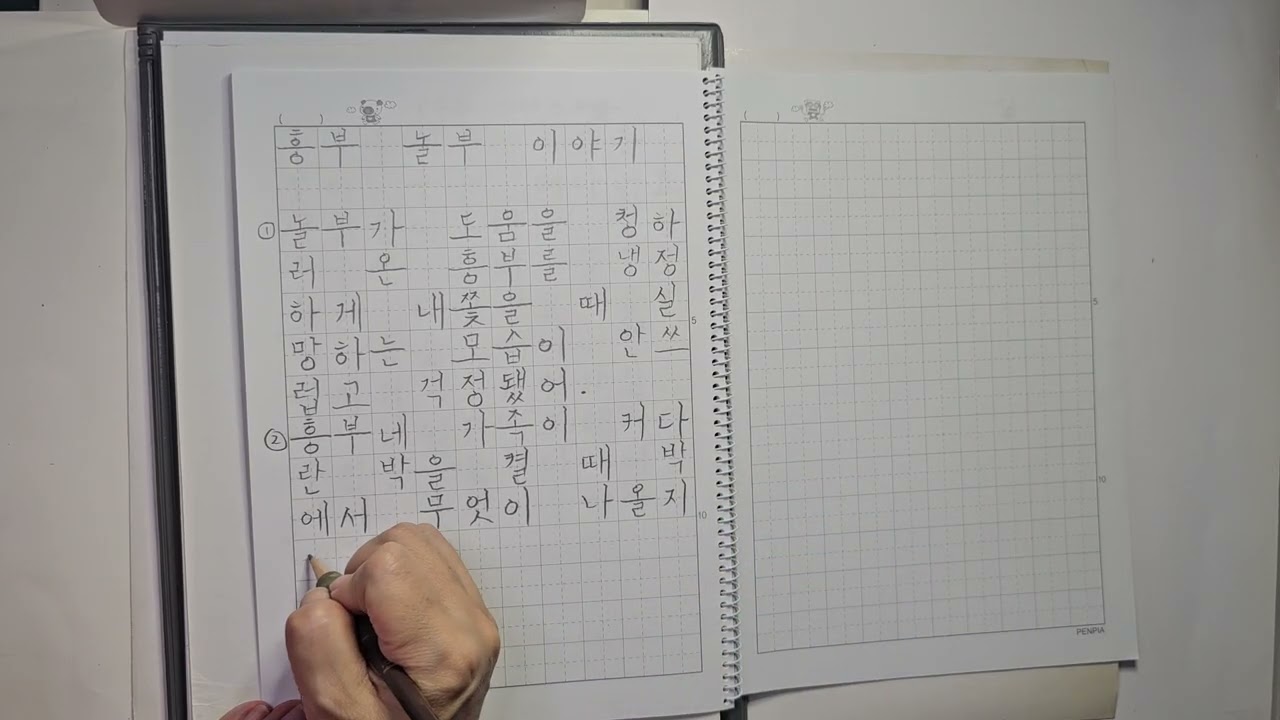 ( )
흥부 놀부 이야기
① 놀부가 도움을 청하
러 온 흥부를 냉정
하게 내쫓을 때 실
망하는 모습이 안쓰
럽고 걱정됐어.
② 흥부네 가족이 커다
란 박을 켤 때 박
에서 무엇이 나올지
5
10
( )
5
10
PENPIA